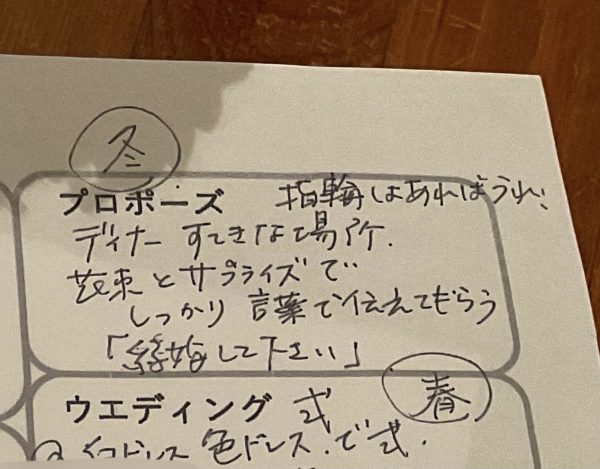 冬
プロポーズ 指輪はあればうれしい
ディナー すてきな場所.
花束とサプライズで
しっかり 言葉で伝えてもらう
「結婚して下さい」
春
ウエディング 式
色ドレス.で式.